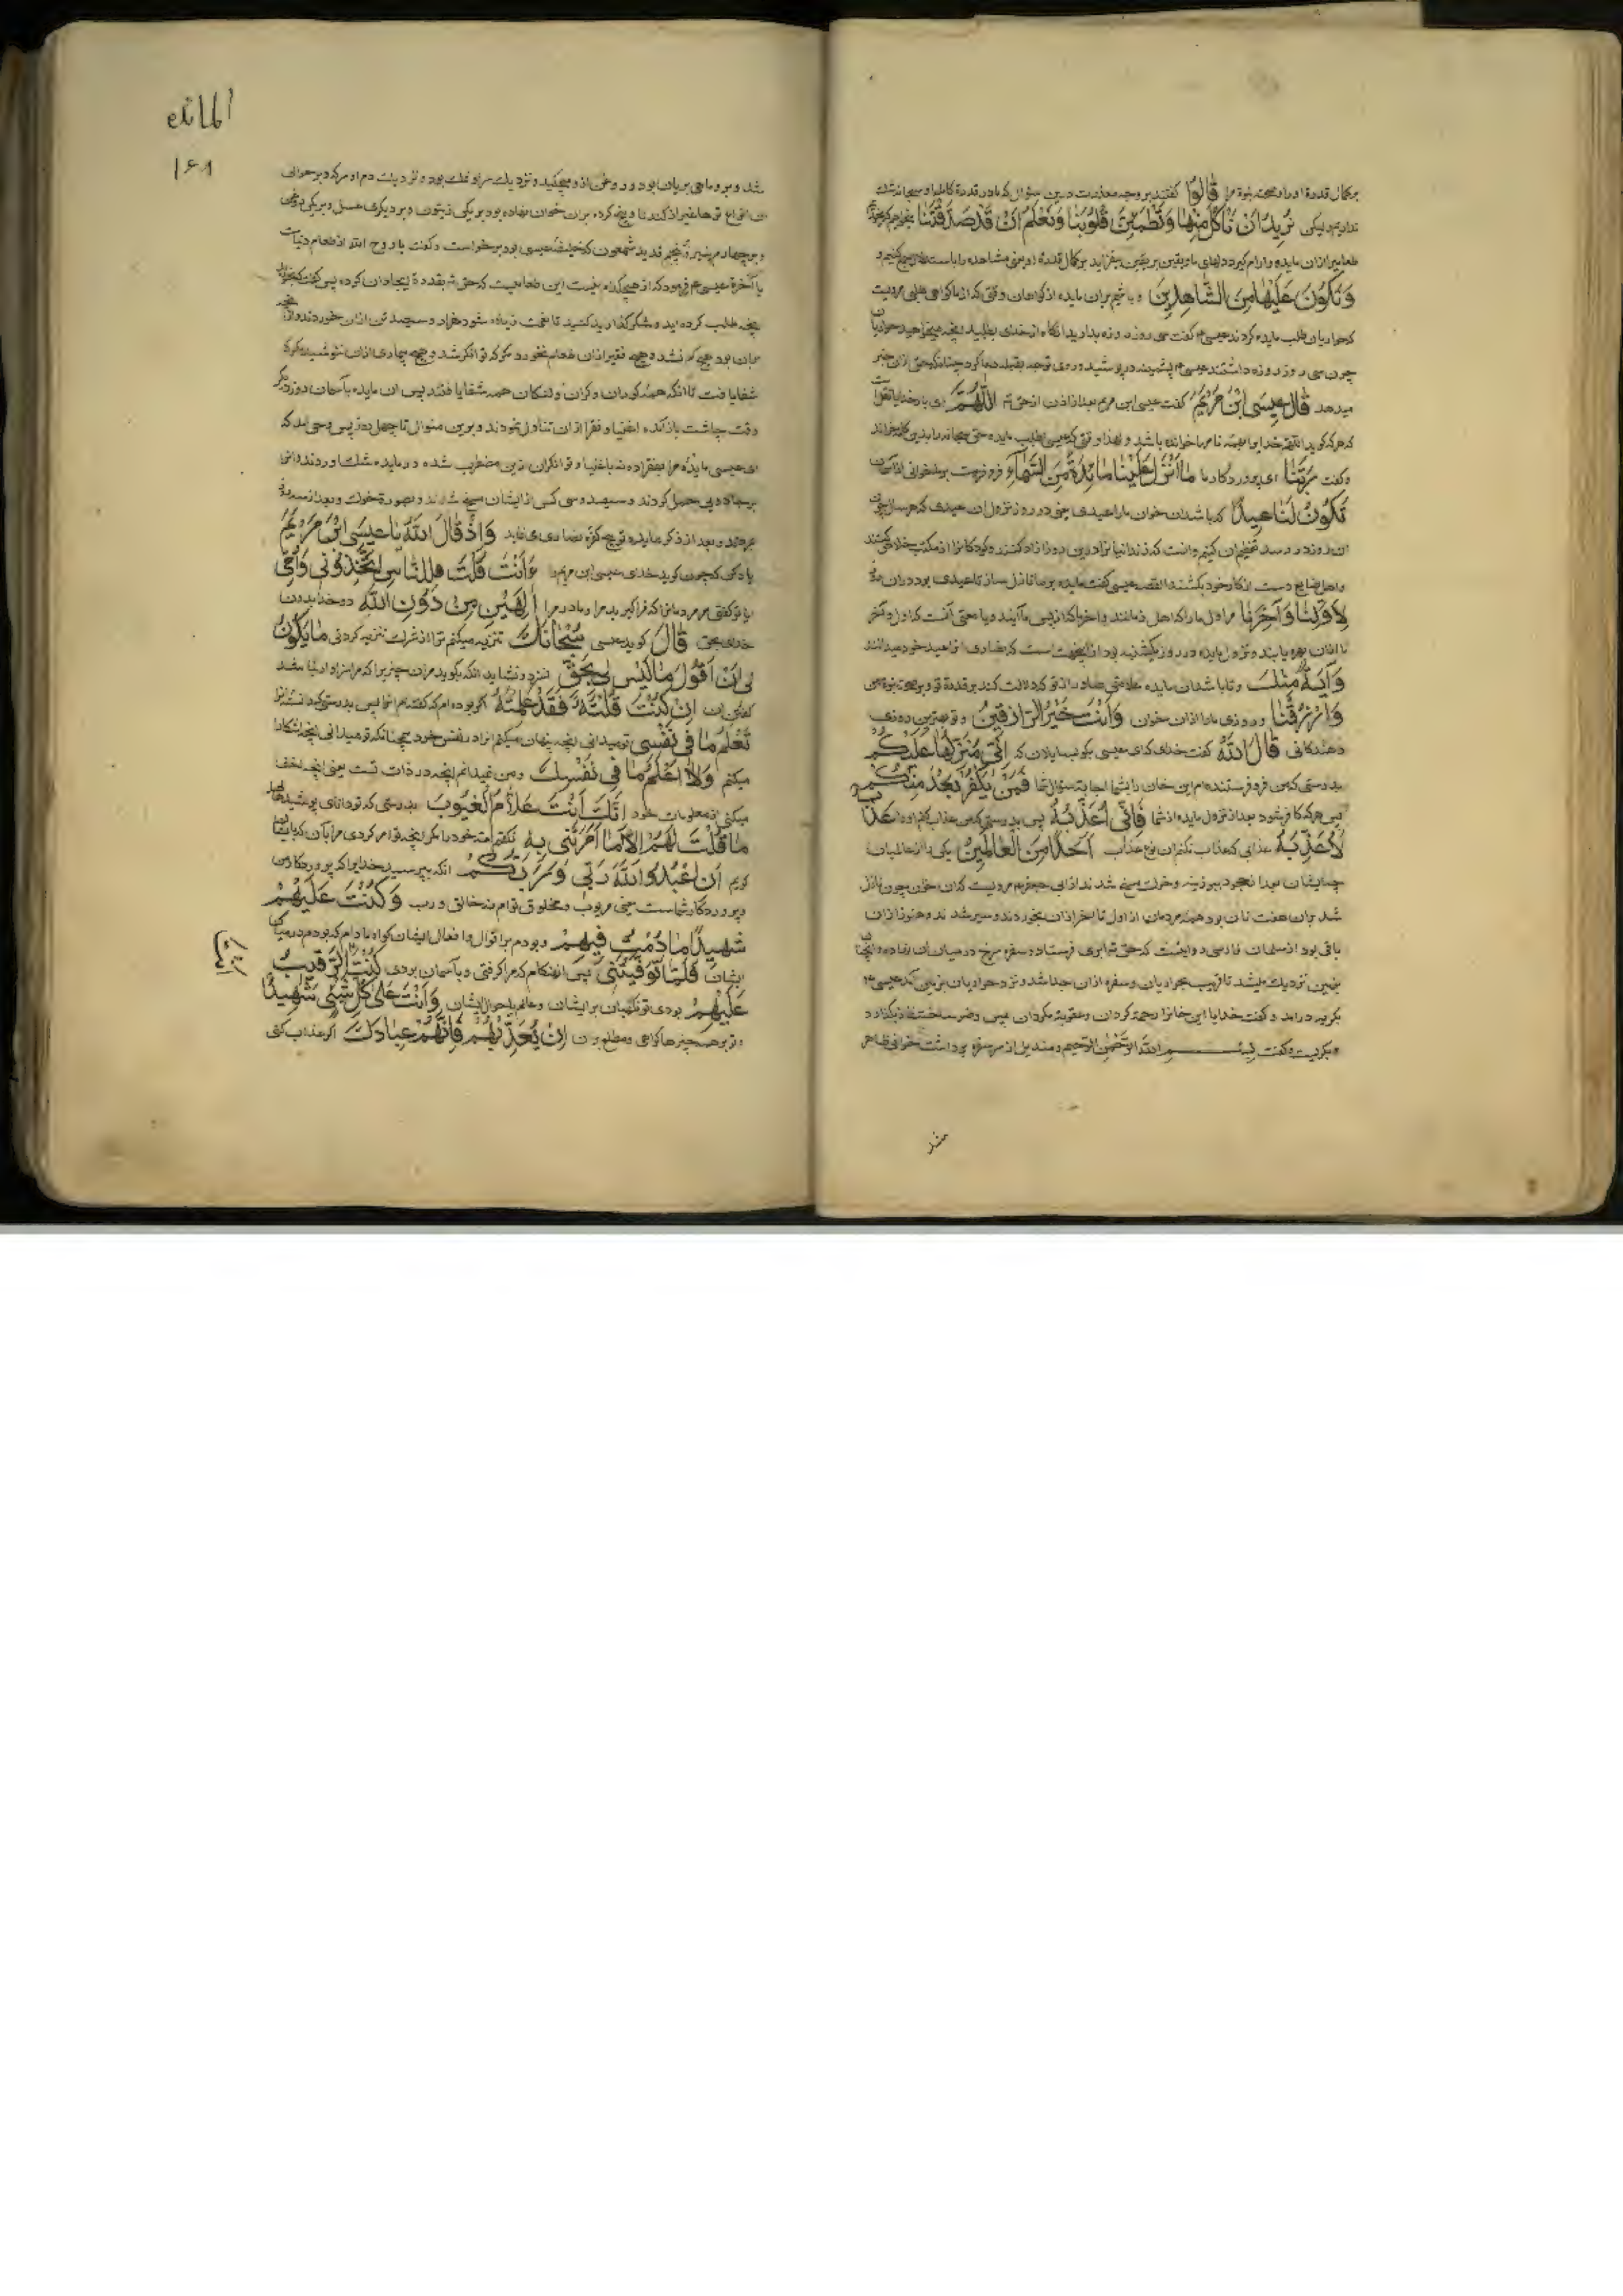 برکمال قدرة او را و صحت نبوة مرا قالوا گفتند بر وجه معذرت درین سؤال که ما در قدرة کامله او سبحانه شك
نداریم ولیکن نریدان ناکل منها وتطمئن قلوبنا ونعلم ان قد صدقتنا
طعامیرا ازان مایده و ارام گیرد دلهای ما و یقین بر یقین بیفزاید بر کمال قدرة او یعنی مشاهده را با استدلال جمع کنیم و
ونکون علیها من الشاهدین و باشیم بران مایده از گواهان وقتی که از ما گواهی طلبی مرویست
که حواریان طلب مایده کردند عیسی ۴ گفت سی روز روزه بدارید انگاه از خدای بطلبید انچه میخواهید حواریان
چون سی روز روزه داشتند عیسی ۴ پشمینه در پوشید و روی توجه بقبله دعا کرد چنانکه حق ازان خبر
میدهد قال عیسی ابن مریم گفت عیسی ابن مریم بعد از اذن از حق تع اللهم ای بار خدایا
که هر که گوید اللهم خدایرا بهمه نامها خوانده باشد و لهذا وقتی که عیسی طلب مایده
وگفت ربنا ای پروردگار ما ما انزل علینا مائدة من السماء فرو فرست بر ما خوانی از آسمان
تکون لنا عیدا که باشد ان خوان ما را عیدی یعنی در روز نزول ان عیدی که هر سال چون
ان روز در رسد تعظیم ان کنیم و انست که زندانیان را درین روز ازاد کنند و کودکانرا از مکتب خلاص کنند
و اهل صنایع دست از کار خود بکشند القصه عیسی گفت مایده بر ما نازل ساز تا عیدی بود دران
لاولنا وآخرنا مر اول ما را که اهل زمانند و اخر ما که از پس ما آیند و یا معنی آنست که اول و آخر
ما ازان بهره یابند و نزول مایده در روز یکشنبه بود ازینجهت است که نصاری انرا عید خود میدانند
وآیة منك و تا باشد ان مایده علامتی صادر از تو که دلالت کند بر قدرة تو و بر صحت نبوة من
وارزقنا و روزی ما را ازان خوان وانت خیر الرازقین و تو بهترین روزی
دهندگانی قال الله گفت خدای که ای عیسی بگو بسایلان که انی منزلها علیکم
بدرستی که من فرو فرستنده ام این خوان را بشما اجابة سؤال شما فمن یکفر بعد منکم
پس هر که کافر شود بعد از نزول مایده از شما فانی اعذبه پس بدرستی که من عذاب کنم او را عذابا
لا اعذبه عذابی که عذاب نکنم ان نوع عذاب احدا من العالمین یکی را از عالمیان
چه ایشان بعد از جحود ببوزینه و خوك مسخ شدند از ابی جعفر ۴ مرویست که ان خوان چون نازل
شد بران هفت نان بود همه مردمان از اول تا باخر ازان بخوردند و سیر شدند و هنوز ازان
باقی بود از سلمان فارسی روایتست که حق تع ابری فرستاد و سفره سرخ در میان ان نهاده و
بزمین نزدیك میشد تا قریب بحواریان و سفره ازان جدا شد و نزد حواریان بزمین آمد عیسی ۴
بگریه درامد و گفت خدایا این خانرا رحمة گردان و عقوبة مگردان پس وضو ساخت
و بگریست و گفت بسم الله الرحمن الرحیم و مندیل از سر سفره برداشت خوانی ظاهر
شد
المائده
۱۶۸
شد و برو ماهی بریان بود و روغن ازو میچکید و نزدیك سر او نمك بود و نزدیك دم او سرکه و بر حوالی
ان انواع ترها غیر از گندنا و پنج گرده بران خوان نهاده بود بر یکی زیتون و بر دیگری عسل و بر یکی روغن
و بر چهارم پنیر و پنجم قدید شمعون که خلیفه عیسی بود برخواست و گفت یا روح الله از طعام دنیاست
یا آخرة عیسی ۴ فرمود که از هیچکدام نیست این طعامیست که حق تع بقدرة ایجاد ان کرده پس گفت بخورید
انچه طلب کرده اید و شکر گذارید کنید تا نعمت زیاده شود هزار و سیصد تن ازان خوردند و ازان
همان بود هیچ کم نشد و هیچ فقیر ازان طعام نخورد مگر که توانگر شد و هیچ بیماری ازان ننوشید مگر که
شفا یافت تا انکه همه کوران و کران و لنگان همه شفا یافتند پس ان مایده بآسمان
وقت چاشت باز آمده اغنیا و فقرا ازان تناول نمودند و برین منوال تا چهل روز پس وحی امد که
ای عیسی مایده مرا بفقرا ده نه باغنیا و توانگران ازین مضطرب شده و در مایده شك اوردند و انرا
برجادویی حمل کردند و سیصد و سی کس از ایشان مسخ شدند و بصورة خوك و بعد از سه روز
مردند و بعد از ذکر مایده توجه کفره نصاری می نماید واذ قال الله یا عیسی ابن مریم
یاد کن که چون گوید خدای عیسی ابن مریم را ءانت قلت للناس اتخذونی وامی
ایا تو گفتی مر مردمانرا که فرا گیرید مرا و مادر مرا الهین من دون الله دو خدا بدون
خدای بحق قال گوید عیسی سبحانك تنزیه میکنم ترا از شرك تنزیه کردنی ما یکون
لی ان اقول ما لیس لی بحق نسزد و نشاید انکه بگوید مران چیزیرا که مرا سزاوار نباشد
گفتن ان ان کنت قلته فقد علمته اگر بوده ام که گفته ام انرا پس بدرستی که دانسته انرا
تعلم ما فی نفسی تو میدانی انچه پنهان میکنم انرا در نفس خود همچنانکه تو میدانی انچه اشکارا
میکنم ولا اعلم ما فی نفسك و من نمیدانم انچه در ذات تست یعنی انچه اخفا
میکنی از معلومات خود انك انت علام الغیوب بدرستی که تو دانای پوشیدهای
ما قلت لهم الا ما امرتنی به نگفتم امت خود را مگر انچه تو امر کردی مرا بآن که ایشانرا
گویم ان اعبدوا الله ربی وربکم انکه بپرستید خدایرا که پروردگار من
و پروردگار شماست یعنی مربوب و مخلوق توام نه خالق و رب وکنت علیهم
شهیدا ما دمت فیهم و بودم بر اقوال و افعال ایشان گواه مادام که بودم در میان
ایشان فلما توفیتنی پس انهنگام که مرا گرفتی و بآسمان بردی کنت انت الرقیب
علیهم بودی تو نگهبان بر ایشان و عالم باحوال ایشان وانت علی کل شیء شهیدا
و تو بر همه چیزها گواهی و مطلع بران ان تعذبهم فانهم عبادك اگر عذاب کنی